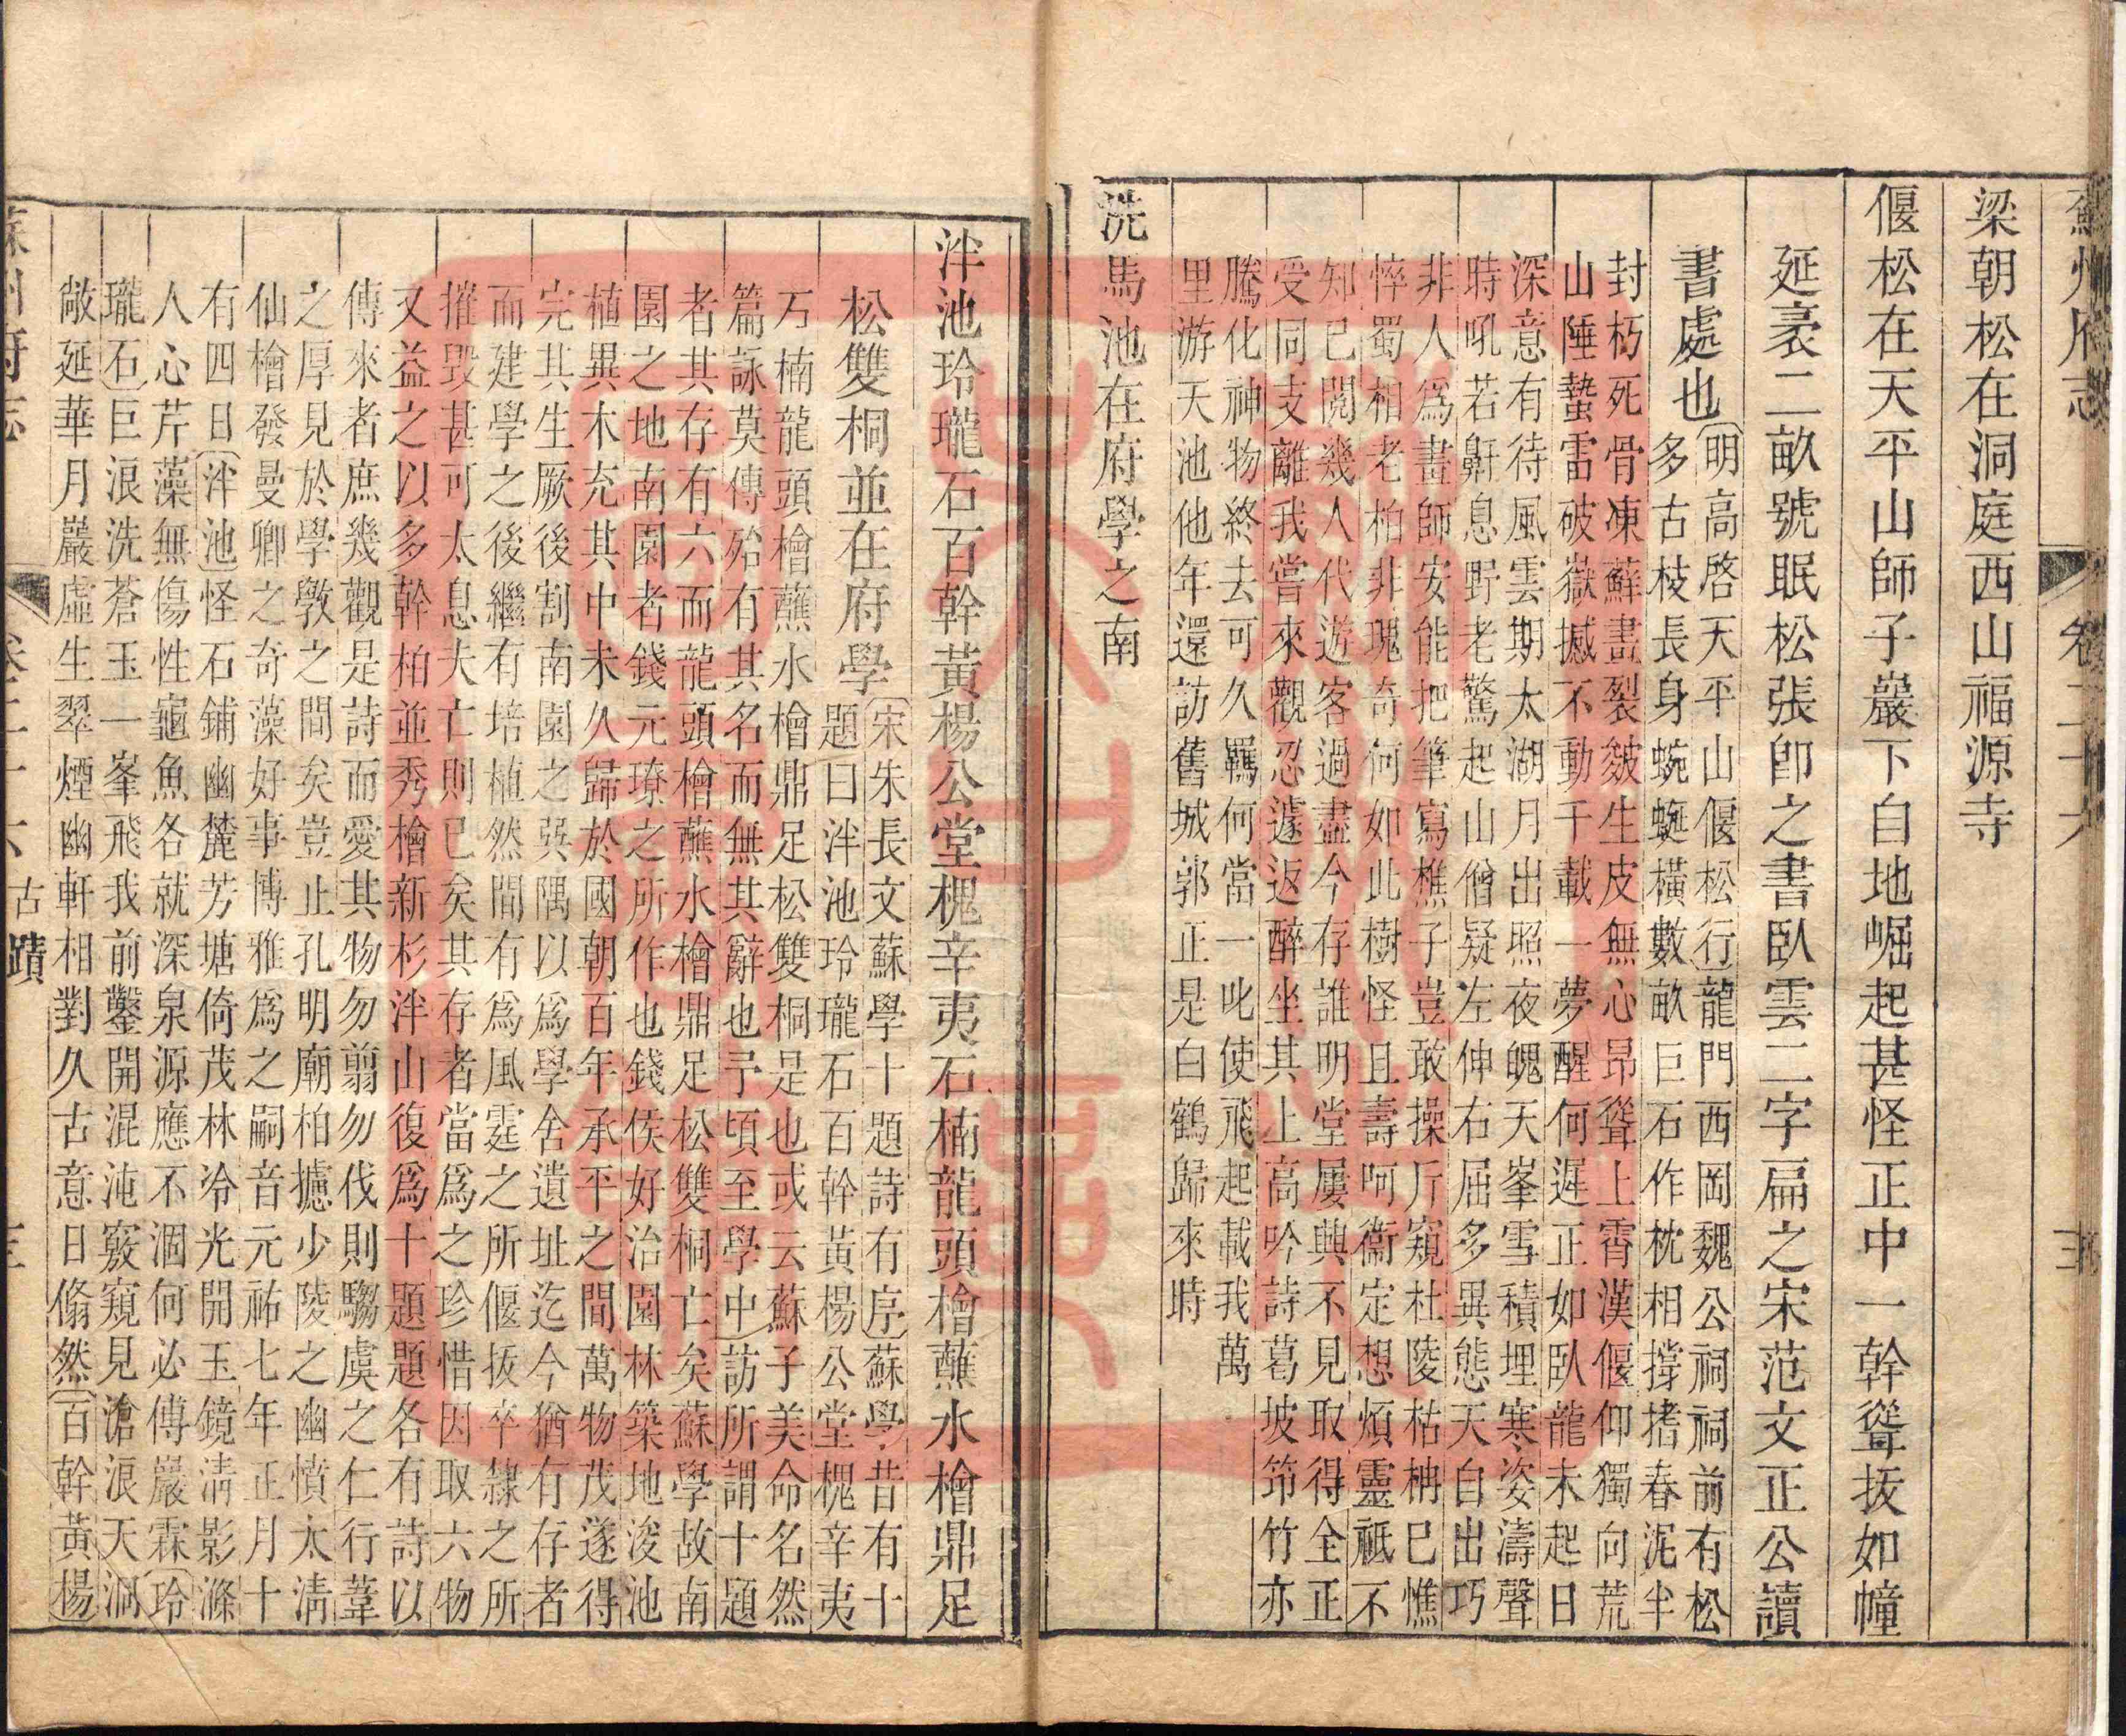 梁朝松在洞庭西山福源寺
偃松在天平山師子巖下自地崛起甚怪正中一幹聳拔如幢
延袤二畝號眠松張卽之書臥雲二字扁之宋范文正公讀
書處也
明高啓天平山偃松行龍門西岡魏公祠祠前有松
多古枝長身蜿蜒橫數畝巨石作枕相撐揩春泥半
封朽死骨凍蘚晝裂皴生皮無心昂聳上霄漢偃仰獨向荒
山陲蟄雷破嶽撼不動千載一夢醒何遲正如臥龍未起日
深意有待風雲期太湖月出照夜魄天峯雪積埋寒姿濤聲
時吼若鼾息野老驚起山僧疑左伸右屈多異態天自出巧
非人爲畫師安能把筆寫樵子豈敢操斤窺杜陵枯柟巳憔
悴蜀相老柏非瑰奇何如此樹怪且壽呵衞定想煩靈祇不
知已閱幾人代遊客過盡今存誰明堂屢興不見取得全正
受同支離我嘗來觀忍遽返醉坐其上高吟詩葛坡笻竹亦
騰化神物終去可久羈何當一叱使飛起載我萬
里游天池他年還訪舊城郭正是白鶴歸來時
洗馬池在府學之南
泮池玲瓏石百幹黃楊公堂槐辛夷石楠龍頭檜蘸水檜鼎足
松雙桐並在府學
宋朱長文蘇學十題詩有序蘇學昔有十
題曰泮池玲瓏石百幹黃楊公堂槐辛夷
石楠龍頭檜蘸水檜鼎足松雙桐是也或云蘇子美命名然
篇詠莫傳殆有其名而無其辭也予頃至學中訪所謂十題
者其存有六而龍頭檜蘸水檜鼎足松雙桐亡矣蘇學故南
園之地南園者錢元璙之所作也錢侯好治園林築地浚池
植異木充其中未久歸於國朝百年承平之間萬物茂遂得
完其生厥後割南園之巽隅以爲學舍遺址迄今猶有存者
而建學之後繼有培植然間有爲風霆之所偃抜卒隸之所
摧毀甚可太息夫亡則巳矣其存者當爲之珍惜因取六物
又益之以多幹柏並秀檜新杉泮山復爲十題題各有詩以
傳來者庶幾觀是詩而愛其物勿翦勿伐則騶虞之仁行葦
之厚見於學敩之間矣豈止孔明廟柏攄少陵之幽憤太淸
仙檜發曼卿之奇藻好事博雅爲之嗣音元祐七年正月十
有四日泮池怪石鋪幽麓芳塘倚茂林冷光開玉鏡淸影滌
人心芹藻無傷性龜魚各就深泉源應不涸何必傅巖霖玲
瓏石巨浪洗蒼玉一峯飛我前鑿開混沌竅窺見滄浪天洞
敞延華月巖虛生翠煙幽軒相對久古意日翛然百幹黃楊
古蹟